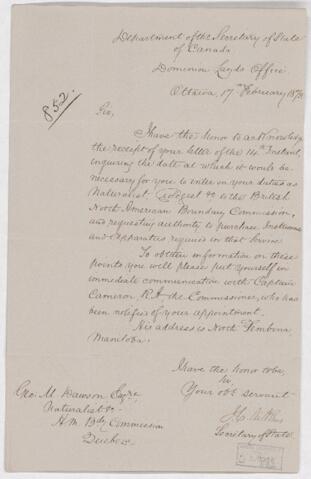 Department of the Secretary of State
of Canada.
Dominion Lands Office.
Ottawa, 17th February 187
852.
Sir,
I have the honor to acknowledge
the receipt of your letter of the 14th Instant,
inquiring the date at which it would be
necessary for you to enter on your duties as
Naturalist, Geologist &c to the British
North American Boundary Commission,
and requesting authority to purchase Instruments
and Apparatus required in that
To obtain information on these
points you will please put yourself in
immediate communication with Captain
Cameron, R.A. the Commissioner, who has
been notified of your appointment.
His address is North Pembina,
Manitoba.
I have the honor to be,
Sir,
Your obt servant
Secretary of State
Geo. M. Dawson Esqre
Naturalist &c
H.M. Bdy Commission
Quebec